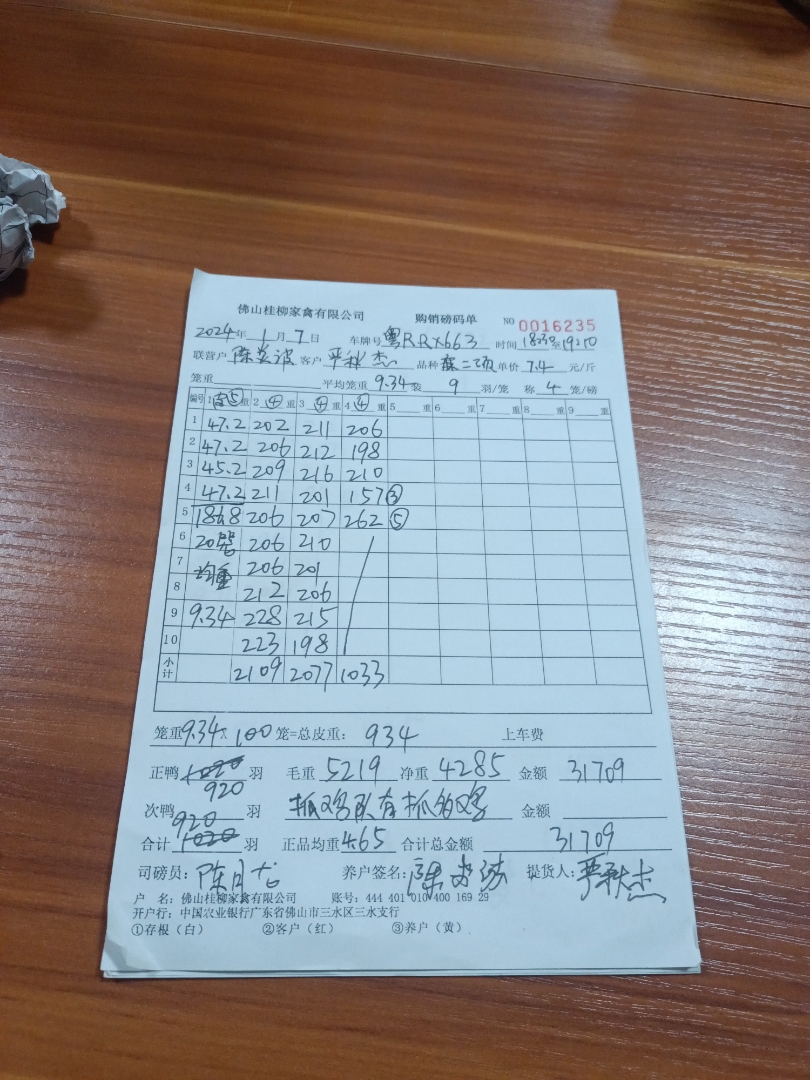 佛山桂柳家禽有限公司 购销磅码单 NO 0016235
2024年 1月 7日 车牌号 粤RRX663 时间 至
联营户 陈 波 客户 严秋杰 品种 二项 单价 7.4 元/斤
笼重 平均笼重 9.34 装 9 羽/笼 称 4 笼/磅
编号 1 ⑤ 重 2 ④ 重 3 ④ 重 4 ④ 重 5 重 6 重 7 重 8 重 9 重
1 47.2 202 211 206
2 47.2 206 212 198
3 45.2 209 216 210
4 47.2 211 201 157 ③
5 186.8 206 207 262 ⑤
6 20笼 206 210
7 均重 206 201
8 212 206
9 9.34 228 215
10 223 198
小计 2109 2077 1033
笼重 9.34 × 100 笼=总皮重: 934 上车费
正鸭 1020 羽 毛重 5219 净重 4285 金额 31709
920
次鸭 羽 抓鸡队有抓的鸡 金额
920
合计 1020 羽 正品均重 4.65 合计总金额 31709
司磅员: 陈月 养户签名: 陈 波 提货人: 严秋杰
户 名: 佛山桂柳家禽有限公司 账号: 444 401 010 400 169 29
开户行: 中国农业银行广东省佛山市三水区三水支行
①存根（白） ②客户（红） ③养户（黄）